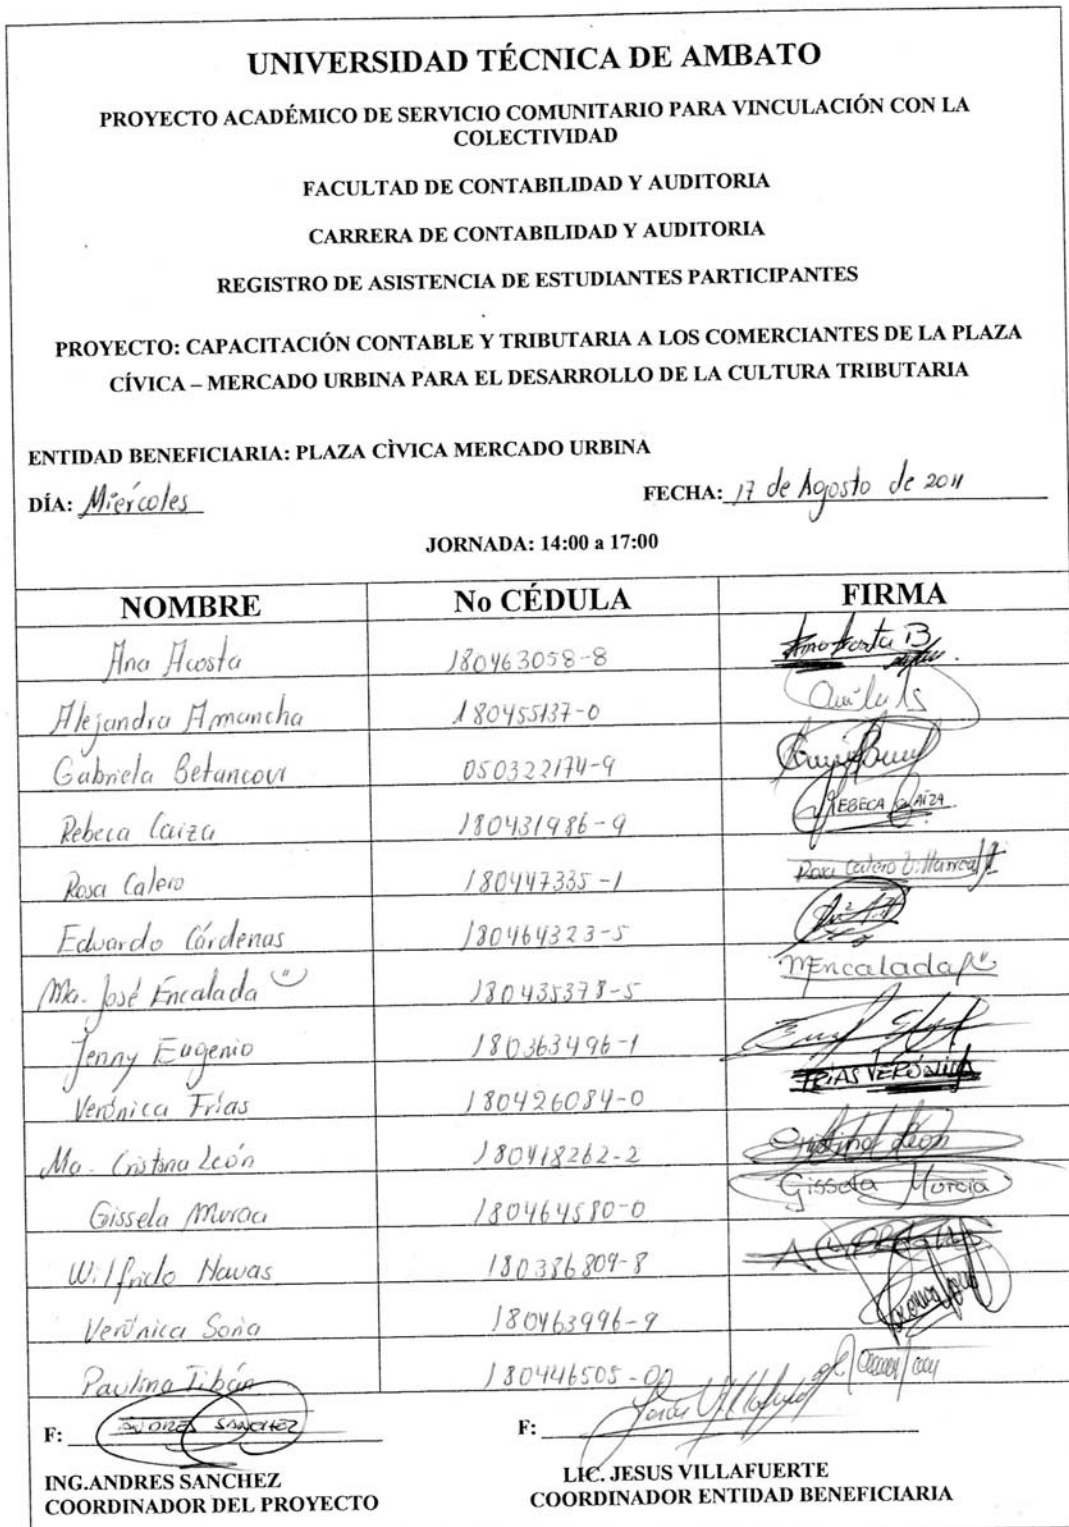 UNIVERSIDAD TÉCNICA DE AMBATO
PROYECTO ACADÉMICO DE SERVICIO COMUNITARIO PARA VINCULACIÓN CON LA
COLECTIVIDAD
FACULTAD DE CONTABILIDAD Y AUDITORIA
CARRERA DE CONTABILIDAD Y AUDITORIA
REGISTRO DE ASISTENCIA DE ESTUDIANTES PARTICIPANTES
PROYECTO: CAPACITACIÓN CONTABLE Y TRIBUTARIA A LOS COMERCIANTES DE LA PLAZA
CÍVICA – MERCADO URBINA PARA EL DESARROLLO DE LA CULTURA TRIBUTARIA
ENTIDAD BENEFICIARIA: PLAZA CÌVICA MERCADO URBINA
DÍA: Miércoles FECHA: 17 de Agosto de 2011
JORNADA: 14:00 a 17:00
NOMBRE No CÉDULA FIRMA
Ana Acosta 180463058-8
Alejandra Amancha 180455137-0
Gabriela Betancour 050322174-9
Rebeca Caiza 180431986-9 REBECA CAIZA
Rosa Calero 180447335-1 Rosa Calero Villarreal
Eduardo Cárdenas 180464323-5
Ma. José Encalada 180435378-5 MEncalada
Jenny Eugenio 180363496-1
Verónica Frías 180426084-0 FRÍAS VERÓNICA
Ma. Cristina León 180418262-2 Cristina León
Gissela Murcia 180464580-0 Gissela Murcia
Wilfrido Navas 180386809-8
Verónica Soria 180463996-9
Paulina Tibán 180446505-0
F: ANDRES SANCHEZ F: Jesús Villafuerte
ING.ANDRES SANCHEZ LIC. JESUS VILLAFUERTE
COORDINADOR DEL PROYECTO COORDINADOR ENTIDAD BENEFICIARIA